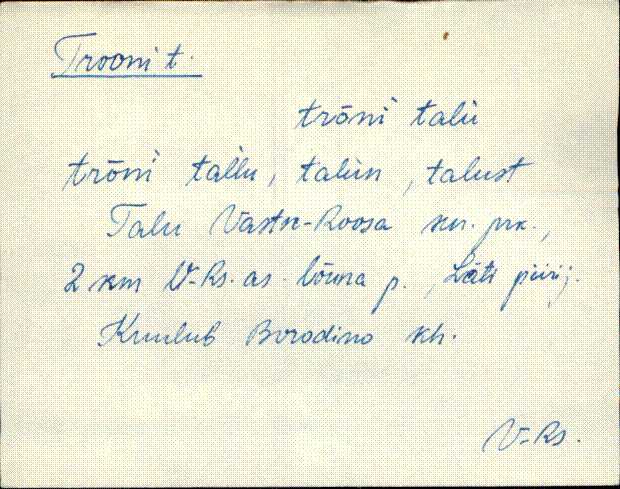 Trooni t.
trōni talu
trōni tallu, talun, talust
Talu Vastse-Roosa kn. prk.,
2 km V-Rs. as. lõuna p., Läti piirij.
Kuulub Borodino kh.
V-Rs.